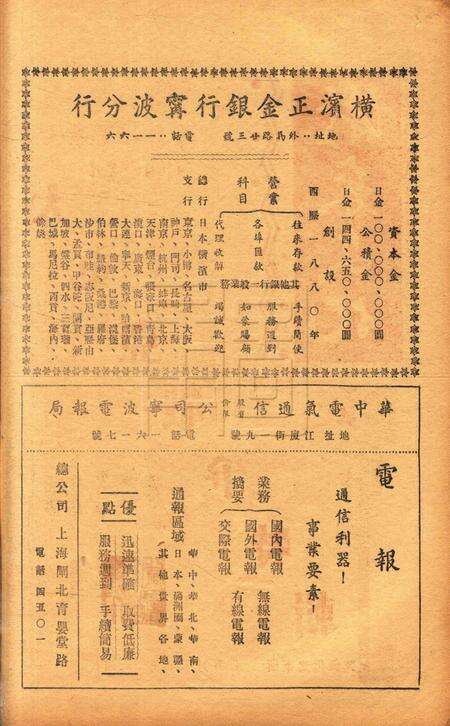 橫濱正金銀行寗波分行
地址：外馬路廿三號　電話：一一六六
資本金
日金一〇〇、〇〇〇、〇〇〇圓
公積金
日金一四四、六五〇、〇〇〇圓
創設
西曆一八八〇年
營業科目
往來存款　手續簡便
各埠匯款　服務週到
其他銀行一般業務
代理收解　竭誠歡迎
如蒙賜顧
總行　日本橫濱市
支行
東京、小樽、名古屋、大阪
神戶、門司、長崎、上海、
南京、杭州、蚌埠、北京
天津、
漢口、廣東、海口、香港
大連、奉天、新京、哈爾濱
營口、倫敦、巴黎、漢堡
柏林、紐約、
沙市、布哇、
大、孟買、甲谷陀、
加坡、
巴城、馬尼拉、西貢、海內、
華中電氣通信股份有限公司寧波電報局
地址江廈街一九號　電話一六一七號
電報
通信利器！
事業要素！
業務摘要
國內電報　無線電報
國外電報
交際電報　有線電報
通報區域
華中、華北、華南、
日本、滿洲國、蒙疆、
其他世界各地、
優點
迅速準確　取費低廉
服務週到　手續簡易
總公司　上海閘北育嬰堂路
電話　四五〇一